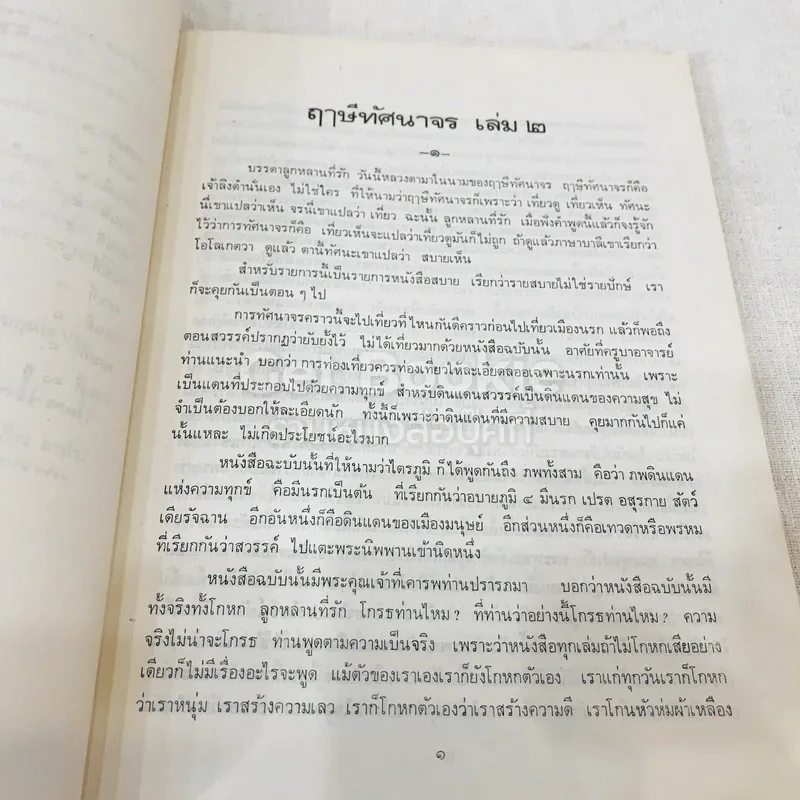 ฤาษีทัศนาจร เล่ม ๒
—๑—
บรรดาลูกหลานที่รัก วันนี้หลวงตามาในนามของฤาษีทัศนาจร ฤาษีทัศนาจรก็คือ
เจ้าลิงดำนั่นเอง ไม่ใช่ใคร ที่ให้นามว่าฤาษีทัศนาจรก็เพราะว่า เที่ยวดู เที่ยวเห็น ทัศนะ
นี่เขาแปลว่าเห็น จรนี่เขาแปลว่า เที่ยว ฉะนั้น ลูกหลานที่รัก เมื่อฟังคำพูดนี้แล้วก็จงรู้จัก
ไว้ว่าการทัศนาจรก็คือ เที่ยวเห็นจะแปลว่าเที่ยวดูมันก็ไม่ถูก ถ้าดูแล้วภาษาบาลีเขาเรียกว่า
โอโลเกตวา ดูแล้ว ตานี้ทัศนะเขาแปลว่า สบายเห็น
สำหรับรายการนี้เป็นรายการหนังสือสบาย เรียกว่ารายสบายไม่ใช่รายปักษ์ เรา
ก็จะคุยกันเป็นตอน ๆ ไป
การทัศนาจรคราวนี้จะไปเที่ยวที่ไหนกันดีคราวก่อนไปเที่ยวเมืองนรก แล้วก็พอถึง
ตอนสวรรค์ปรากฏว่ายับยั้งไว้ ไม่ได้เที่ยวมากด้วยหนังสือฉบับนั้น อาศัยที่ครูบาอาจารย์
ท่านแนะนำ บอกว่า การท่องเที่ยวควรท่องเที่ยวให้ละเอียดลออเฉพาะนรกเท่านั้น เพราะ
เป็นแดนที่ประกอบไปด้วยความทุกข์ สำหรับดินแดนสวรรค์เป็นดินแดนของความสุข ไม่
จำเป็นต้องบอกให้ละเอียดนัก ทั้งนี้ก็เพราะว่าดินแดนที่มีความสบาย คุยมากกันไปก็แค่
นั้นแหละ ไม่เกิดประโยชน์อะไรมาก
หนังสือฉะบับนั้นที่ให้นามว่าไตรภูมิ ก็ได้พูดกันถึง ภพทั้งสาม คือว่า ภพดินแดน
แห่งความทุกข์ คือมีนรกเป็นต้น ที่เรียกกันว่าอบายภูมิ ๔ มีนรก เปรต อสุรกาย สัตว์
เดียรัจฉาน อีกอันหนึ่งก็คือดินแดนของเมืองมนุษย์ อีกส่วนหนึ่งก็คือเทวดาหรือพรหม
ที่เรียกกันว่าสวรรค์ ไปแตะพระนิพพานเข้านิดหนึ่ง
หนังสือฉบับนั้นมีพระคุณเจ้าที่เคารพท่านปรารภมา บอกว่าหนังสือฉบับนั้นมี
ทั้งจริงทั้งโกหก ลูกหลานที่รัก โกรธท่านไหม ? ที่ท่านว่าอย่างนี้โกรธท่านไหม ? ความ
จริงไม่น่าจะโกรธ ท่านพูดตามความเป็นจริง เพราะว่าหนังสือทุกเล่มถ้าไม่โกหกเสียอย่าง
เดียวก็ไม่มีเรื่องอะไรจะพูด แม้ตัวของเราเองเราก็ยังโกหกตัวเอง เราแก่ทุกวันเราก็โกหก
ว่าเราหนุ่ม เราสร้างความเลว เราก็โกหกตัวเองว่าเราสร้างความดี เราโกนหัวห่มผ้าเหลือง
๑